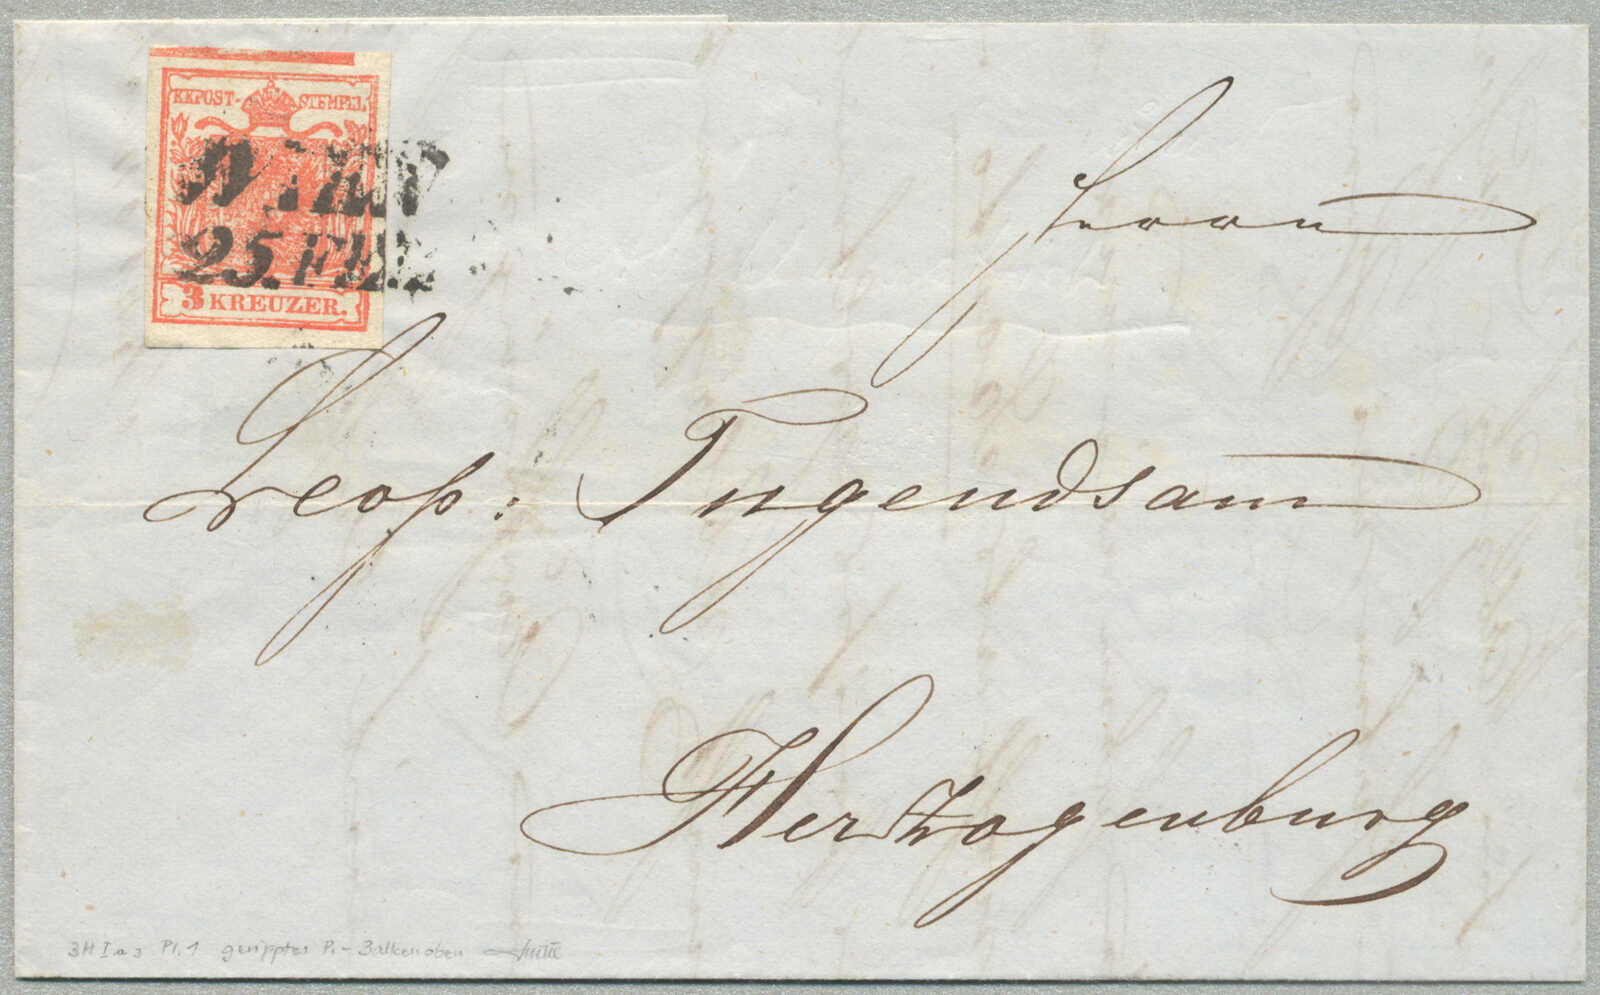 KKPOST-STEMPEL
WIEN
25. FEB.
3 KREUZER.
Herrn
Leop: Tugendsam
Herzogenburg
3H I a 3 Pl. 1 geripptes P. - Balken oben